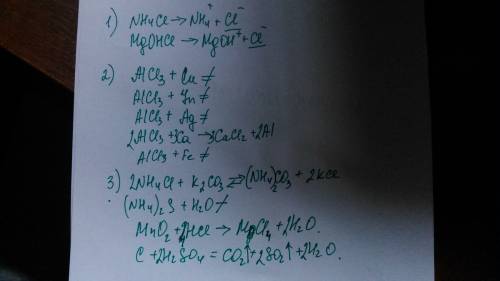 1) NH4Cl → NH4⁺ + Cl⁻
MgOHCl → MgOH⁺ + Cl⁻
2) AlCl3 + Cu ≠
AlCl3 + Zn ≠
AlCl3 + Ag ≠
2AlCl3 + 3Ca → 3CaCl2 + 2Al
AlCl3 + Fe ≠
3) 2NH4Cl + K2CO3 ⇄ (NH4)2CO3 + 2KCl
(NH4)2S + H2O ≠
MnO2 + 4HCl → MnCl4 + 2H2O.
C + 2H2SO4 = CO2↑ + 2SO2↑ + 2H2O.